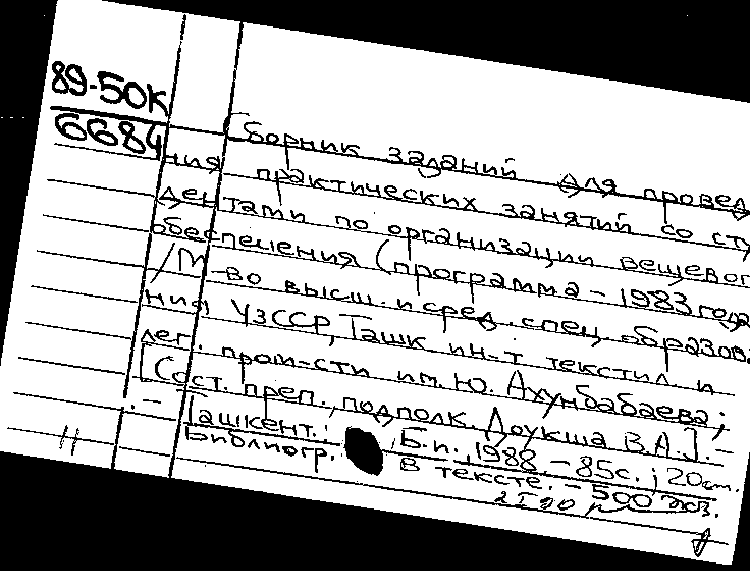 89-50К
6684
Сборник заданий для провед
ния практических занятий со сту
дентами по организации вещевог
обеспечения (программа - 1983 года
/М-во высш. и сред. спец. образова
ния УзССР, Ташк. ин-т текстил. и
лег. пром-сти им. Ю. Ахунбабаева;
[Сост. преп., подполк. Доукша В.А.]. -
. - Ташкент: Б.и., 1988. - 85с.; 20см.
Библиогр. в тексте. - 500 экз.
11